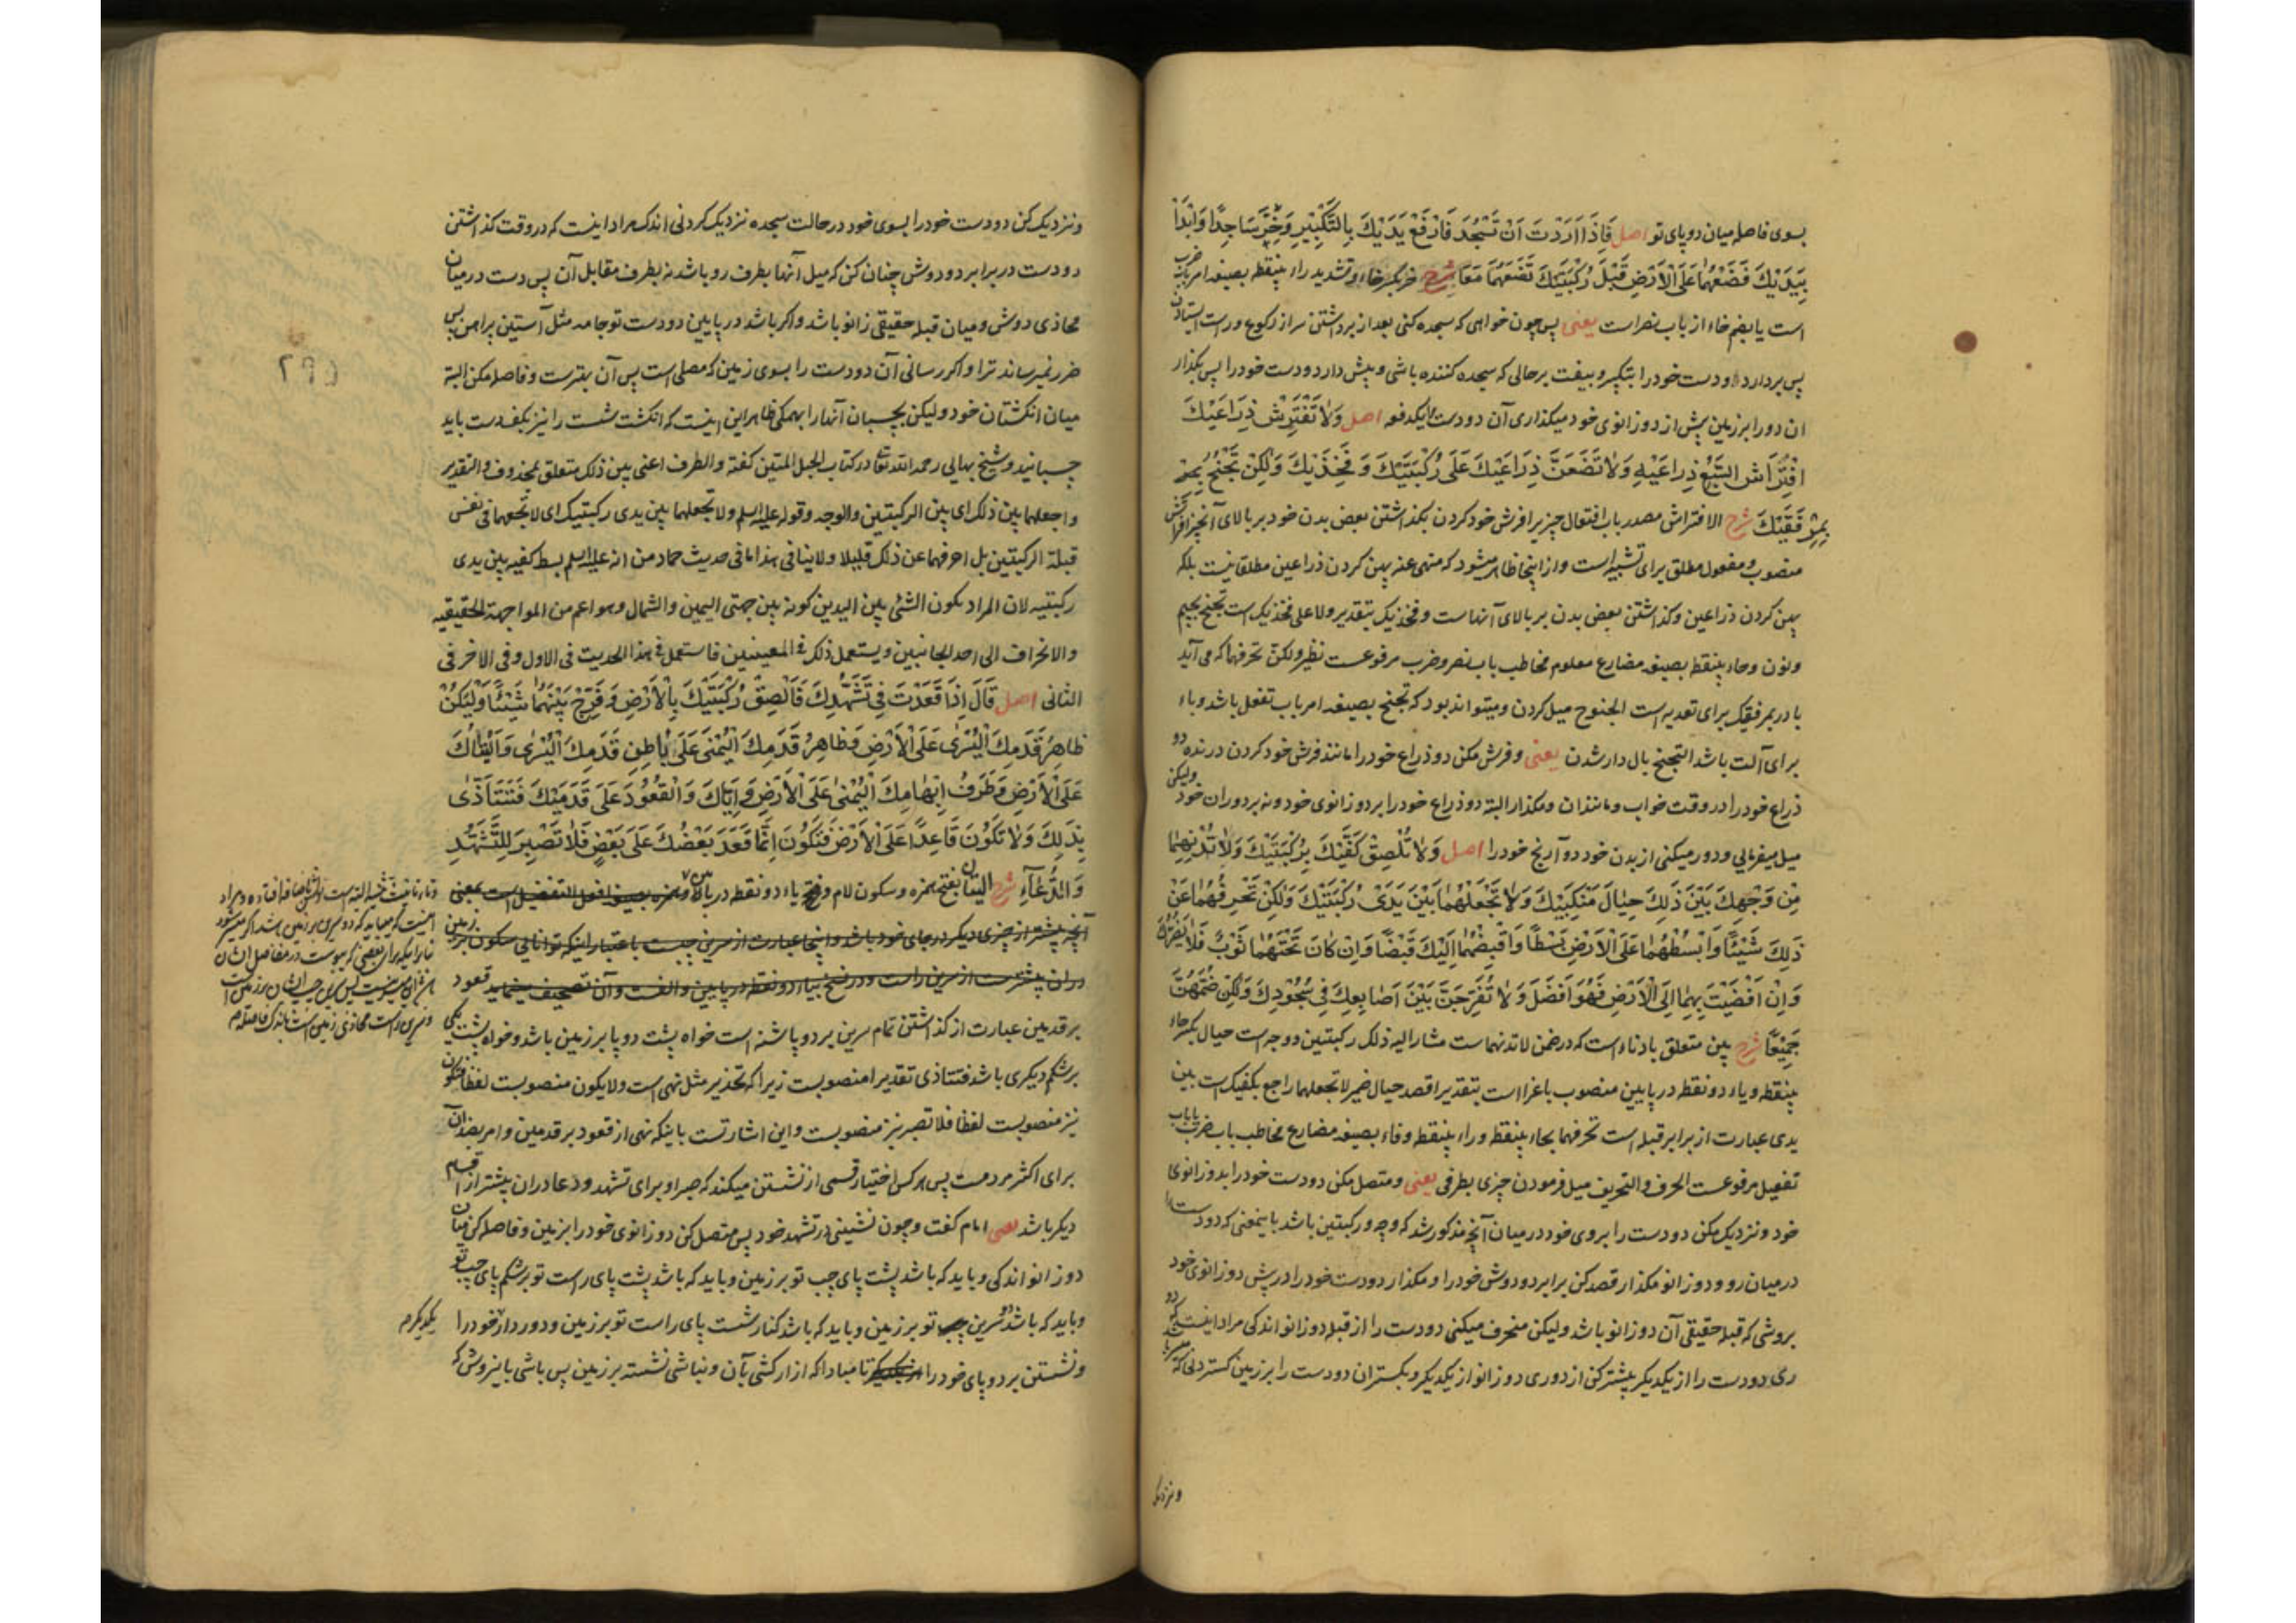 بسوی فاصله میان دو پای تو اصل فَاِذَا اَرَدْتَ اَنْ تَسْجُدَ فَارْفَعْ یَدَیْكَ بِالتَّكْبِیْرِ وَخِرَّ سَاجِدًا وَابْدَأْ
بِیَدَیْكَ فَضَعْهُمَا عَلَی الْاَرْضِ قَبْلَ رُكْبَتَیْكَ تَضَعُهُمَا مَعًا شرح خر بکسر خاء وتشدید راء بینقطه بصیغه امر باب ضرب
است یا بضم خاء از باب نصر است یعنی پس چون خواهی که سجده کنی بعد از برداشتن سر از رکوع و راست ایستادن
پس بردار دو دست خود را بتکبیر و بیفت برحالی که سجده کننده باشی و پیش دار دو دست خود را پس بگذار
ان دو را برزمین پیش از دو زانوی خود میگذاری آن دو دست را یکدفعه اصل وَلَا تَفْتَرِشْ ذِرَاعَیْكَ
افْتِرَاشَ السَّبُعِ ذِرَاعَیْهِ وَلَا تَضَعَنَّ ذِرَاعَیْكَ عَلَی رُكْبَتَیْكَ وَفَخِذَیْكَ وَلٰكِنْ تَجْنَحُ
بِمِرْفَقَیْكَ شرح الافتراش مصدر باب افتعال چیزیرا فرش خود کردن بگذاشتن بعض بدن خود بر بالای آنچیز افتراش
منصوب و مفعول مطلق برای تشبیه است و از اینجا ظاهر میشود که منهی عنه پهن کردن ذراعین مطلقا نیست بلکه
پهن کردن ذراعین و گذاشتن بعض بدن بر بالای آنهاست و فخذیک بتقدیر ولا علی فخذیک است تجنح بجیم
ونون وحاء بینقطه بصیغه مضارع معلوم مخاطب باب نصر و ضرب مرفوعست نظیر ولکن تحرفهما که می آید
با در بمرفقیک برای تعدیه است الجنوح میل کردن و میتواند بود که تجنح بصیغه امر باب تفعل باشد و باء
برای آلت باشد التجنح بال دار شدن یعنی و فرش مکن دو ذراع خود را مانند فرش خود کردن درنده دو
ذراع خود را در وقت خواب و مانند ان و مگذار البته دو ذراع خود را بر دو زانوی خود و نه بر دو ران خود ولیکن
میل میفرمایی و دور میکنی از بدن خود دو آرنج خود را اصل وَلَا تُلْصِقْ كَفَّیْكَ بِرُكْبَتَیْكَ وَلَا تُدْنِهِمَا
مِنْ وَجْهِكَ بَیْنَ ذٰلِكَ حِیَالَ مَنْكِبَیْكَ وَلَا تَجْعَلْهُمَا بَیْنَ یَدَیْ رُكْبَتَیْكَ وَلٰكِنْ تَحْرِفُهُمَا عَنْ
ذٰلِكَ شَیْئًا وَابْسُطْهُمَا عَلَی الْاَرْضِ بَسْطًا وَاقْبِضْهُمَا اِلَیْكَ قَبْضًا وَاِنْ كَانَ تَحْتَهُمَا ثَوْبٌ فَلَا یَضُرُّكَ
وَاِنْ اَفْضَیْتَ بِهِمَا اِلَی الْاَرْضِ فَهُوَ اَفْضَلُ وَلَا تُفَرِّجَنَّ بَیْنَ اَصَابِعِكَ فِی سُجُودِكَ وَلٰكِنْ ضُمَّهُنَّ
جَمِیْعًا شرح بین متعلق بادناء است که در ضمن لا تدنهماست مشار الیه ذلک رکبتین و وجه است حیال بکسر حاء
بینقطه و یاء دو نقطه در پایین منصوب باغرا است بتقدیر اقصد حیال ضمیر لا تجعلهما راجع بکفیک است بین
یدی عبارت از برابر قبله است تحرفهما بحاء بینقطه و راء بینقطه و فاء بصیغه مضارع مخاطب باب ضرب یا باب
تفعیل مرفوعست الحرف والتحریف میل فرمودن چیزی بطرفی یعنی و متصل مکن دو دست خود را بدو زانوی
خود و نزدیک مکن دو دست را بروی خود در میان آنچه مذکور شد که وجه و رکبتین باشد باینمعنی که دو دست را
در میان رو و دو زانو مگذار قصد کن برابر دو دوش خود را و مگذار دو دست خود را در پیش دو زانوی خود
بروشی که قبله حقیقی آن دو زانو باشد ولیکن منحرف میکنی دو دست را از قبله دو زانو اندکی مراد اینست که
دوری دو دست را از یکدیگر بیشتر کن از دوری دو زانو از یکدیگر و بگستران دو دست را برزمین گستردنی
ونزدیک
ونزدیک کن دو دست خود را بسوی خود در حالت سجده نزدیک کردنی اندک مراد اینست که در وقت گذاشتن
دو دست در برابر دو دوش چنان کن که میل آنها بطرف رو باشد نه بطرف مقابل آن پس دست در میان
محاذی دوش و میان قبله حقیقی زانو باشد و اگر باشد در پایین دو دست تو جامه مثل آستین پیراهن پس
ضرر نمیرساند ترا و اگر رسانی آن دو دست را بسوی زمین که مصلی است پس آن بهترست و فاصله مکن البته
میان انگشتان خود ولیکن بچسبان آنها را بهمکی ظاهر این اینست که انگشت شست را نیز بکف دست باید
چسبانید و شیخ بهایی رحمه الله تعالی در کتاب الحبل المتین گفته والظرف اعنی بین ذلک متعلق بمحذوف والتقدیر
واجعلهما بین ذلک ای بین الرکبتین والوجه وقوله علیه السلم ولا تجعلهما بین یدی رکبتیک ای لا تجعلهما فی نفس
قبلة الرکبتین بل احرفهما عن ذلک قلیلا ولا ینافی هذا ما فی حدیث حماد من انه علیه السلم بسط کفیه بین یدی
رکبتیه لان المراد بکون الشئ بین الیدین کونه بین جهتی الیمین والشمال وهو اعم من المواجهة الحقیقیه
والانحراف الی احد الجانبین ویستعمل ذلک فی المعنیین فاستعمل فی هذا الحدیث فی الاول وفی الاخر فی
الثانی اصل قَالَ اِذَا قَعَدْتَ فِی تَشَهُّدِكَ فَاَلْصِقْ رُكْبَتَیْكَ بِالْاَرْضِ وَفَرِّجْ بَیْنَهُمَا شَیْئًا وَلْیَكُنْ
ظَاهِرُ قَدَمِكَ الْیُسْرٰی عَلَی الْاَرْضِ وَظَاهِرُ قَدَمِكَ الْیُمْنٰی عَلَی بَاطِنِ قَدَمِكَ الْیُسْرٰی وَاَلْیَتَاكَ
عَلَی الْاَرْضِ وَطَرَفُ اِبْهَامِكَ الْیُمْنٰی عَلَی الْاَرْضِ وَاِیَّاكَ وَالْقُعُوْدَ عَلَی قَدَمَیْكَ فَتَتَاَذّٰی
بِذٰلِكَ وَلَا تَكُوْنُ قَاعِدًا عَلَی الْاَرْضِ فَتَكُوْنَ اِنَّمَا قَعَدَ بَعْضُكَ عَلَی بَعْضٍ فَلَا تَصْبِرَ لِلتَّشَهُّدِ
وَالدُّعَآءِ شرح الیتان بفتح همزه وسکون لام و فتح یاء دو نقطه در پایین
قعود
برقدمین عبارت از گذاشتن تمام سرین بر دو پاشنه است خواه پشت دو پا برزمین باشد و خواه پشت یکی
برشکم دیگری باشد فتتاذی تقدیرا منصوبست زیرا که تحذیر مثل نهی است ولا یکون منصوبست لفظا فتکون
نیز منصوبست لفظا فلا تصبر نیز منصوبست و این اشارتست باینکه نهی از قعود برقدمین و امر بضد آن
برای اکثر مردمست پس هرکس اختیار قسمی از نشستن میکند که صبر او برای تشهد و دعا در ان بیشتر از اقسام
دیگر باشد یعنی امام گفت و چون نشینی در تشهد خود پس متصل کن دو زانوی خود را بزمین و فاصله کن میان
دو زانو اندکی و باید که باشد پشت پای چپ تو برزمین و باید که باشد پشت پای راست تو برشکم پای چپ تو
و باید که باشد دو سرین تو برزمین و باید که باشد کنار شست پای راست تو برزمین و دور دار خود را
ونشستن بر دو پای خود را تا مبادا که ازار کشی بآن و نباشی نشسته برزمین پس باشی باینروش که